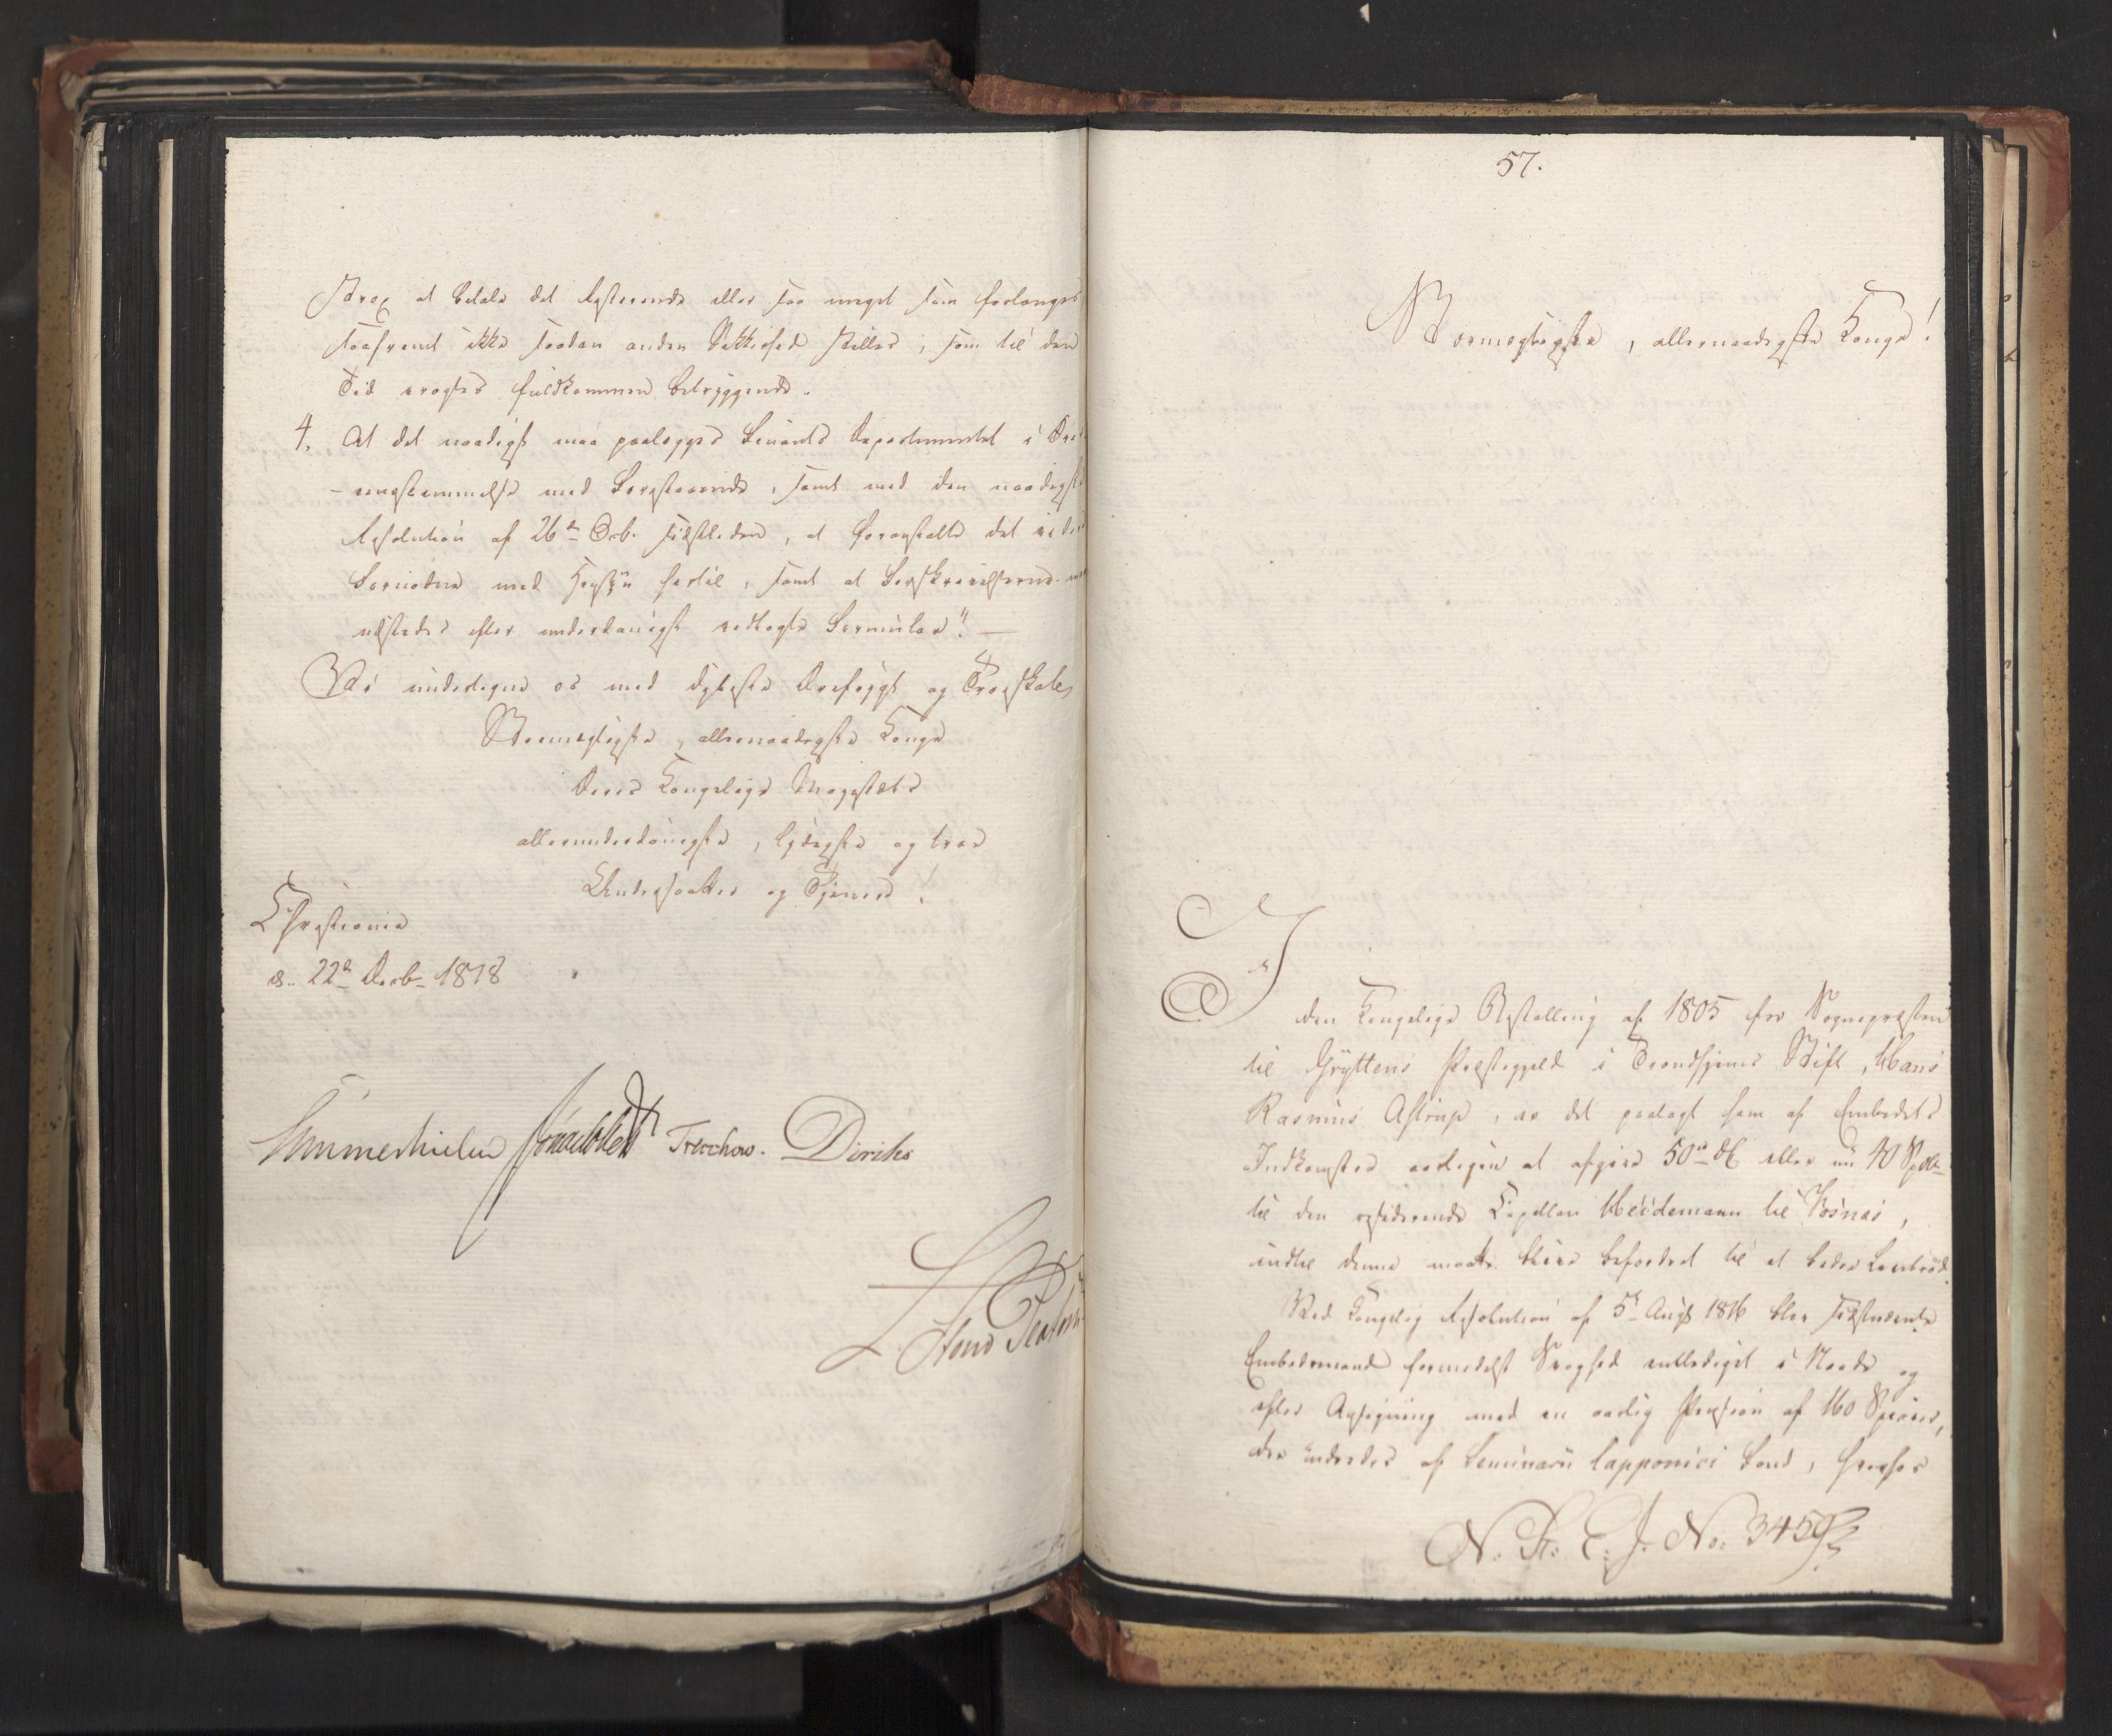 strax at betale det Resterende eller saa meget som forlanges
saafremt ikke saadan anden Sikkerhed stilles, som til den
Tid eragtes fuldkommen betryggende.
4. At det naadigst maa paalægges Finants Departementet i Over-
-eensstemmelse med Forestaaende, samt med den naadigste
Resolution af 26de Octb. sidstleden, at foranstalte det videre
Fornødne med Hensyn hertil, samt at Forskrivelserne
udstedes efter underdanigst vedlagte Formular". —
Vi undertegne os med dybeste Ærefrygt og Troeskab,
Stormægtigste, allernaadigste Konge
Deres Kongelige Majestæts
allerunderdanigste, lydigste og troe
Undersaatter og Tjenere!
Christiania
d. 22de Decb. 1818
Sommerhielm Treschow. Diriks
57.
Stormægtigste, allernaadigste Konge!
I
den Kongelige Bestalling af 1805 for Sognepræsten
til Gryttens Præstegjeld i Trondhjems Stift, Hans
Rasmus Astrup, er det paalagt ham af Embedets
Indkomster aarligen at afgive 50 rd eller nu 40 Spd
til den residerende Capellan Heidemann til Vosnæs,
indtil denne maatte blive befordret til et bedre Levebrød.
Ved Kongelig Resolution af 5t Augt 1816 blev sidstnævnte
Embedsmand formedelst Svaghed entlediget i Naade og
efter Ansøgning med en aarlig Pension af 160 Species,
der udredes af Seminarii lapponici Fond, hvorfor
N. R: C. J. No: 3459